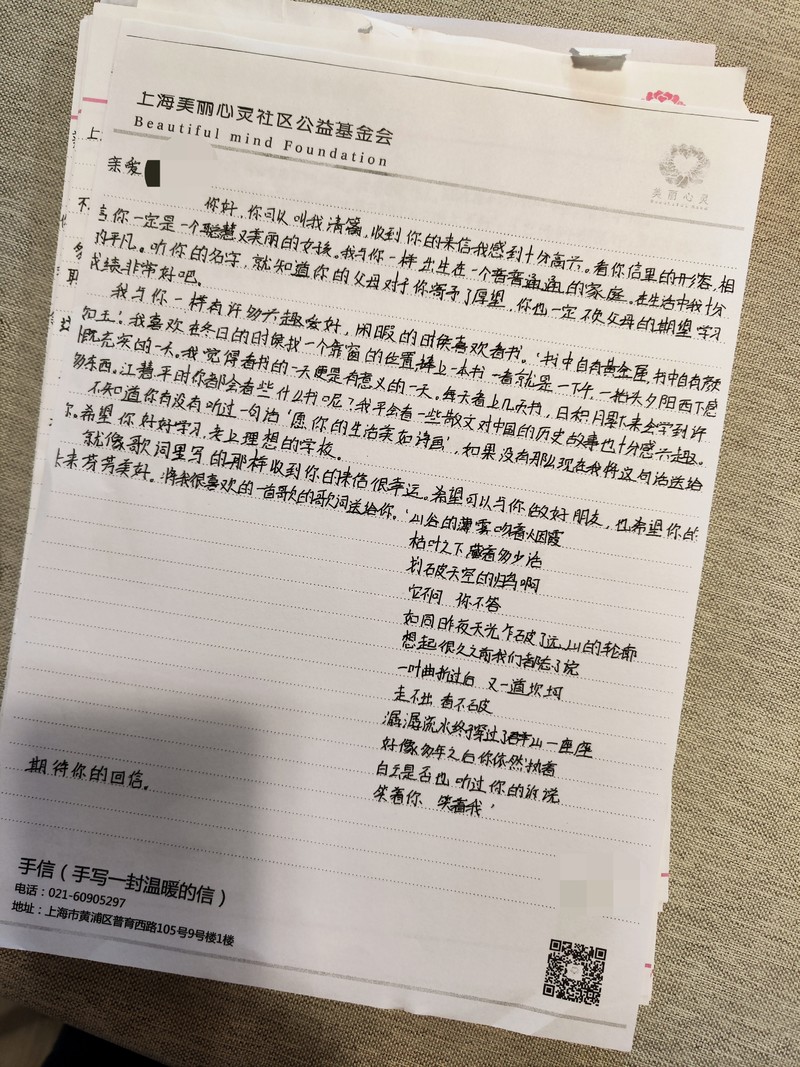 上海美丽心灵社区公益基金会
Beautiful mind Foundation
美丽心灵
亲爱
你好,你可以叫我清篱,收到你的来信我感到十分高兴。看你信里的形容,相
你一定是一个聪慧又美丽的女孩。我与你一样出生在一个普普通通的家庭。在生活中我十分
的平凡。听你的名字,就知道你的父母对于你寄予了厚望,你也一定不负父母的期望学习
成绩非常好吧。
我与你一样有许多兴趣爱好,闲暇的时候喜欢看书。'书中自有黄金屋,书中自有颜
如玉'。我喜欢在冬日的时候找一个靠窗的位置捧上一本书一看就是一下午,一抬头夕阳西下感
既充实的一天。我觉得看书的一天便是有意义的一天。每天看上几页书,日积月累下来会学到许
多东西。江慧平时你都会看些什么书呢?我平会看一些散文对中国的历史故事也十分感兴趣。
不知道你有没有听过一句话'愿你的生活美如诗画',如果没有那么现在我将这句话送给
你。希望你好好学习,考上理想的学校。
就像歌词里写的那样收到你的来信很幸运。希望可以与你做好朋友,也希望你的
未来芬芳美好。将我很喜欢的一首歌的歌词送给你。'山谷的薄雾吻着烟霞
枯叶之下藏着多少话
划破天空的归鸟啊
它不问 你不答
如同昨夜天光乍破了远山的轮廓
想起很久之前我们都忘了说
一叶曲折过后 又一道坎坷
走不出 看不破
潺潺流水终于穿过了群山一座座
好像多年之后你依然执着
白云是否也听过你的诉说
笑着你 笑着我'
期待你的回信。
手信(手写一封温暖的信)
电话:021-60905297
地址:上海市黄浦区普育西路105号9号楼1楼